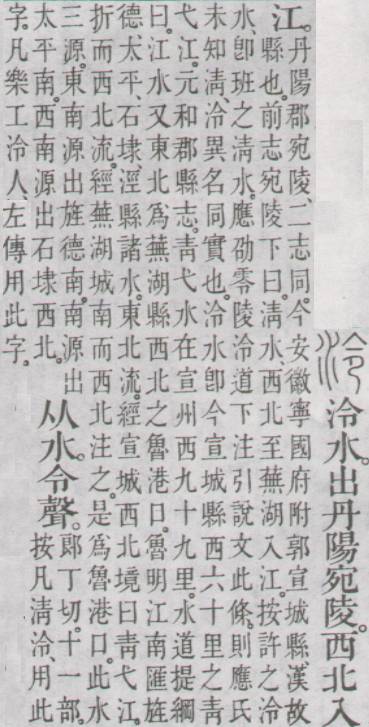 泠水。出丹陽宛陵。西北入
江。丹陽郡宛陵、二志同。今安徽寧國府附郭宣城縣、漢故
縣也。前志宛陵下曰。清水、西北至蕪湖入江。按許之泠
水、卽班之清水。應劭零陵泠道下注引說文此條。則應氏
未知清、泠異名同實也。泠水卽今宣城縣西六十里之青
弋江。元和郡縣志。青弋水在宣州西九十九里。水道提綱
曰。江水又東北爲蕪湖縣西北之魯港口。魯明江南匯旌
德、太平、石埭、涇縣諸水。東北流。經宣城西北境曰青弋江。
折而西北流。經蕪湖城南而西北注之。是爲魯港口。此水
三源。東南源出旌德南。南源出
太平南。西南源出石埭西北。
从水。令聲。
郎丁切。十一部。
按凡清泠、用此
字。凡樂工泠人、左傳用此字。